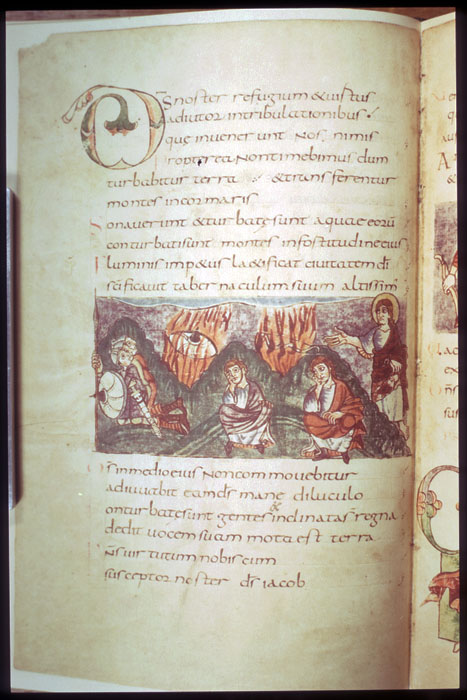 DS noster refugium & uirtus
adiutor in tribulationibus
que inuenerunt nos nimis
propterea non timebimus dum
turbabitur terra & transferentur
montes in cor maris
Sonauerunt & turbate sunt aquae eorū
conturbati sunt montes in fortitudine eius
Fluminis imp&us l&ificat ciuitatem dī
scīficauit tabernaculum suum altissim
Dś in medio eius non commouebitur
adiuuabit eam ds mane diluculo
Conturbate sunt gentes & inclinata s̄ regna
dedit uocem suam mota est terra
Dn̄s uirtutum nobiscum
susceptor noster ds iacob